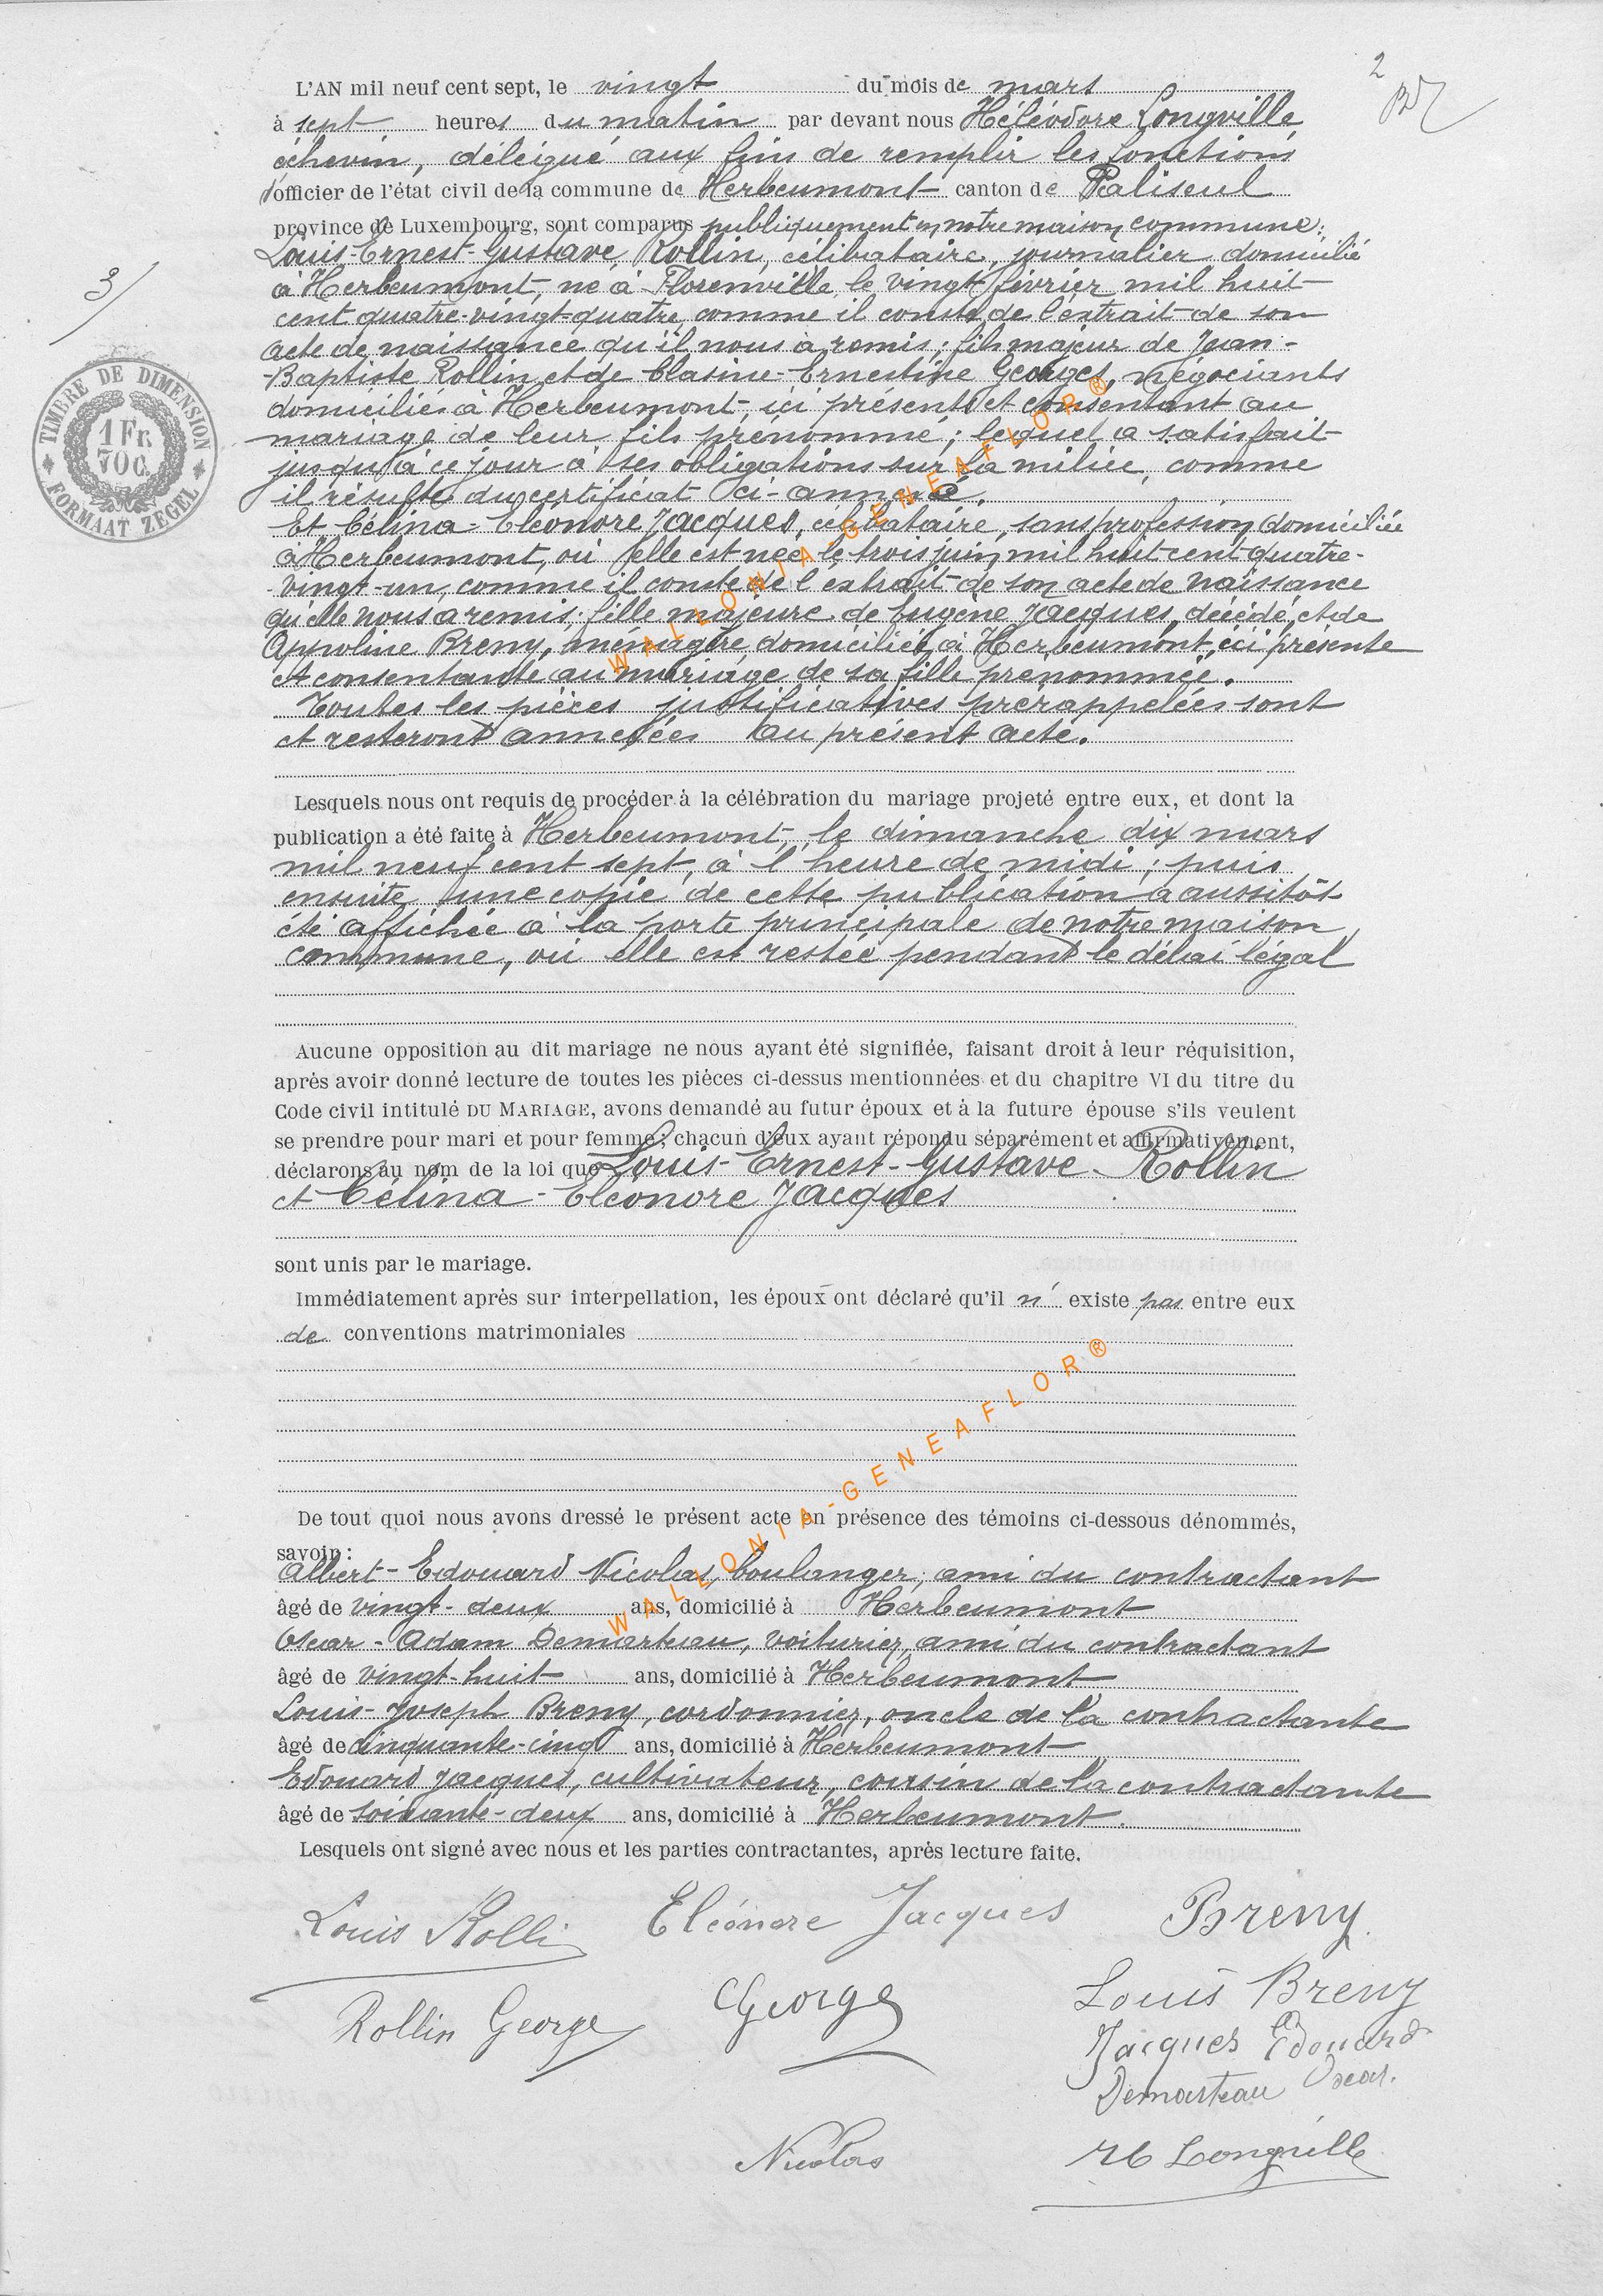 2
L'AN mil neuf cent sept, le vingt du mois de mars
à sept heures du matin par devant nous Héléodore Longville
échevin, délégué aux fins de remplir les fonctions
d'officier de l'état civil de la commune de Herbeumont canton de Paliseul
province de Luxembourg, sont comparus publiquement en notre maison commune:
Louis-Ernest-Gustave Rollin, célibataire, journalier domicilié
à Herbeumont, né à Florenville le vingt février mil huit
cent quatre-vingt-quatre, comme il conste de l'extrait de son
acte de naissance qu'il nous a remis; fils majeur de Jean-
-Baptiste Rollin et de Clasine-Ernestine Georges, négociants
domiciliés à Herbeumont, ici présents et consentant au
mariage de leur fils prénommé; lequel a satisfait
jusqu'à ce jour à ses obligations sur la milice, comme
il résulte du certificat ci-annexé.
Et Célina-Eléonore Jacques, célibataire, sans profession, domiciliée
à Herbeumont, où elle est née le trois juin mil huit cent quatre-
-vingt-un, comme il conste de l'extrait de son acte de naissance
qu'elle nous a remis; fille majeure de Eugène Jacques, décédé, et de
Appoline Breny, ménagère domiciliée à Herbeumont, ici présente
et consentante au mariage de sa fille prénommée.
Toutes les pièces justificatives prérappelées sont
et resteront annexées au présent acte.
3/
TIMBRE DE DIMENSION
1 Fr.
70 C.
FORMAAT ZEGEL
Lesquels nous ont requis de procéder à la célébration du mariage projeté entre eux, et dont la
publication a été faite à Herbeumont, le dimanche dix mars
mil neuf cent sept, à l'heure de midi; puis
ensuite une copie de cette publication a aussitôt
été affichée à la porte principale de notre maison
commune, où elle est restée pendant le délai légal
Aucune opposition au dit mariage ne nous ayant été signifiée, faisant droit à leur réquisition,
après avoir donné lecture de toutes les pièces ci-dessus mentionnées et du chapitre VI du titre du
Code civil intitulé DU MARIAGE, avons demandé au futur époux et à la future épouse s'ils veulent
se prendre pour mari et pour femme; chacun d'eux ayant répondu séparément et affirmativement,
déclarons au nom de la loi que Louis-Ernest-Gustave Rollin
et Célina-Eléonore Jacques
sont unis par le mariage.
Immédiatement après sur interpellation, les époux ont déclaré qu'il n' existe pas entre eux
de conventions matrimoniales
De tout quoi nous avons dressé le présent acte en présence des témoins ci-dessous dénommés,
savoir:
Albert-Edouard Nicolas, boulanger, ami du contractant
âgé de vingt-deux ans, domicilié à Herbeumont
Oscar-Adam Demarteau, voiturier, ami du contractant
âgé de vingt-huit ans, domicilié à Herbeumont
Louis-Joseph Breny, cordonnier, oncle de la contractante
âgé de cinquante-cinq ans, domicilié à Herbeumont
Edouard Jacques, cultivateur, cousin de la contractante
âgé de soixante-deux ans, domicilié à Herbeumont.
Lesquels ont signé avec nous et les parties contractantes, après lecture faite.
Louis Rollin Eléonore Jacques Breny
Rollin George George Louis Breny
Jacques Edouard
Demarteau Oscar.
Nicolas H Longville
WALLONIA-GENEAFLOR®
WALLONIA-GENEAFLOR®